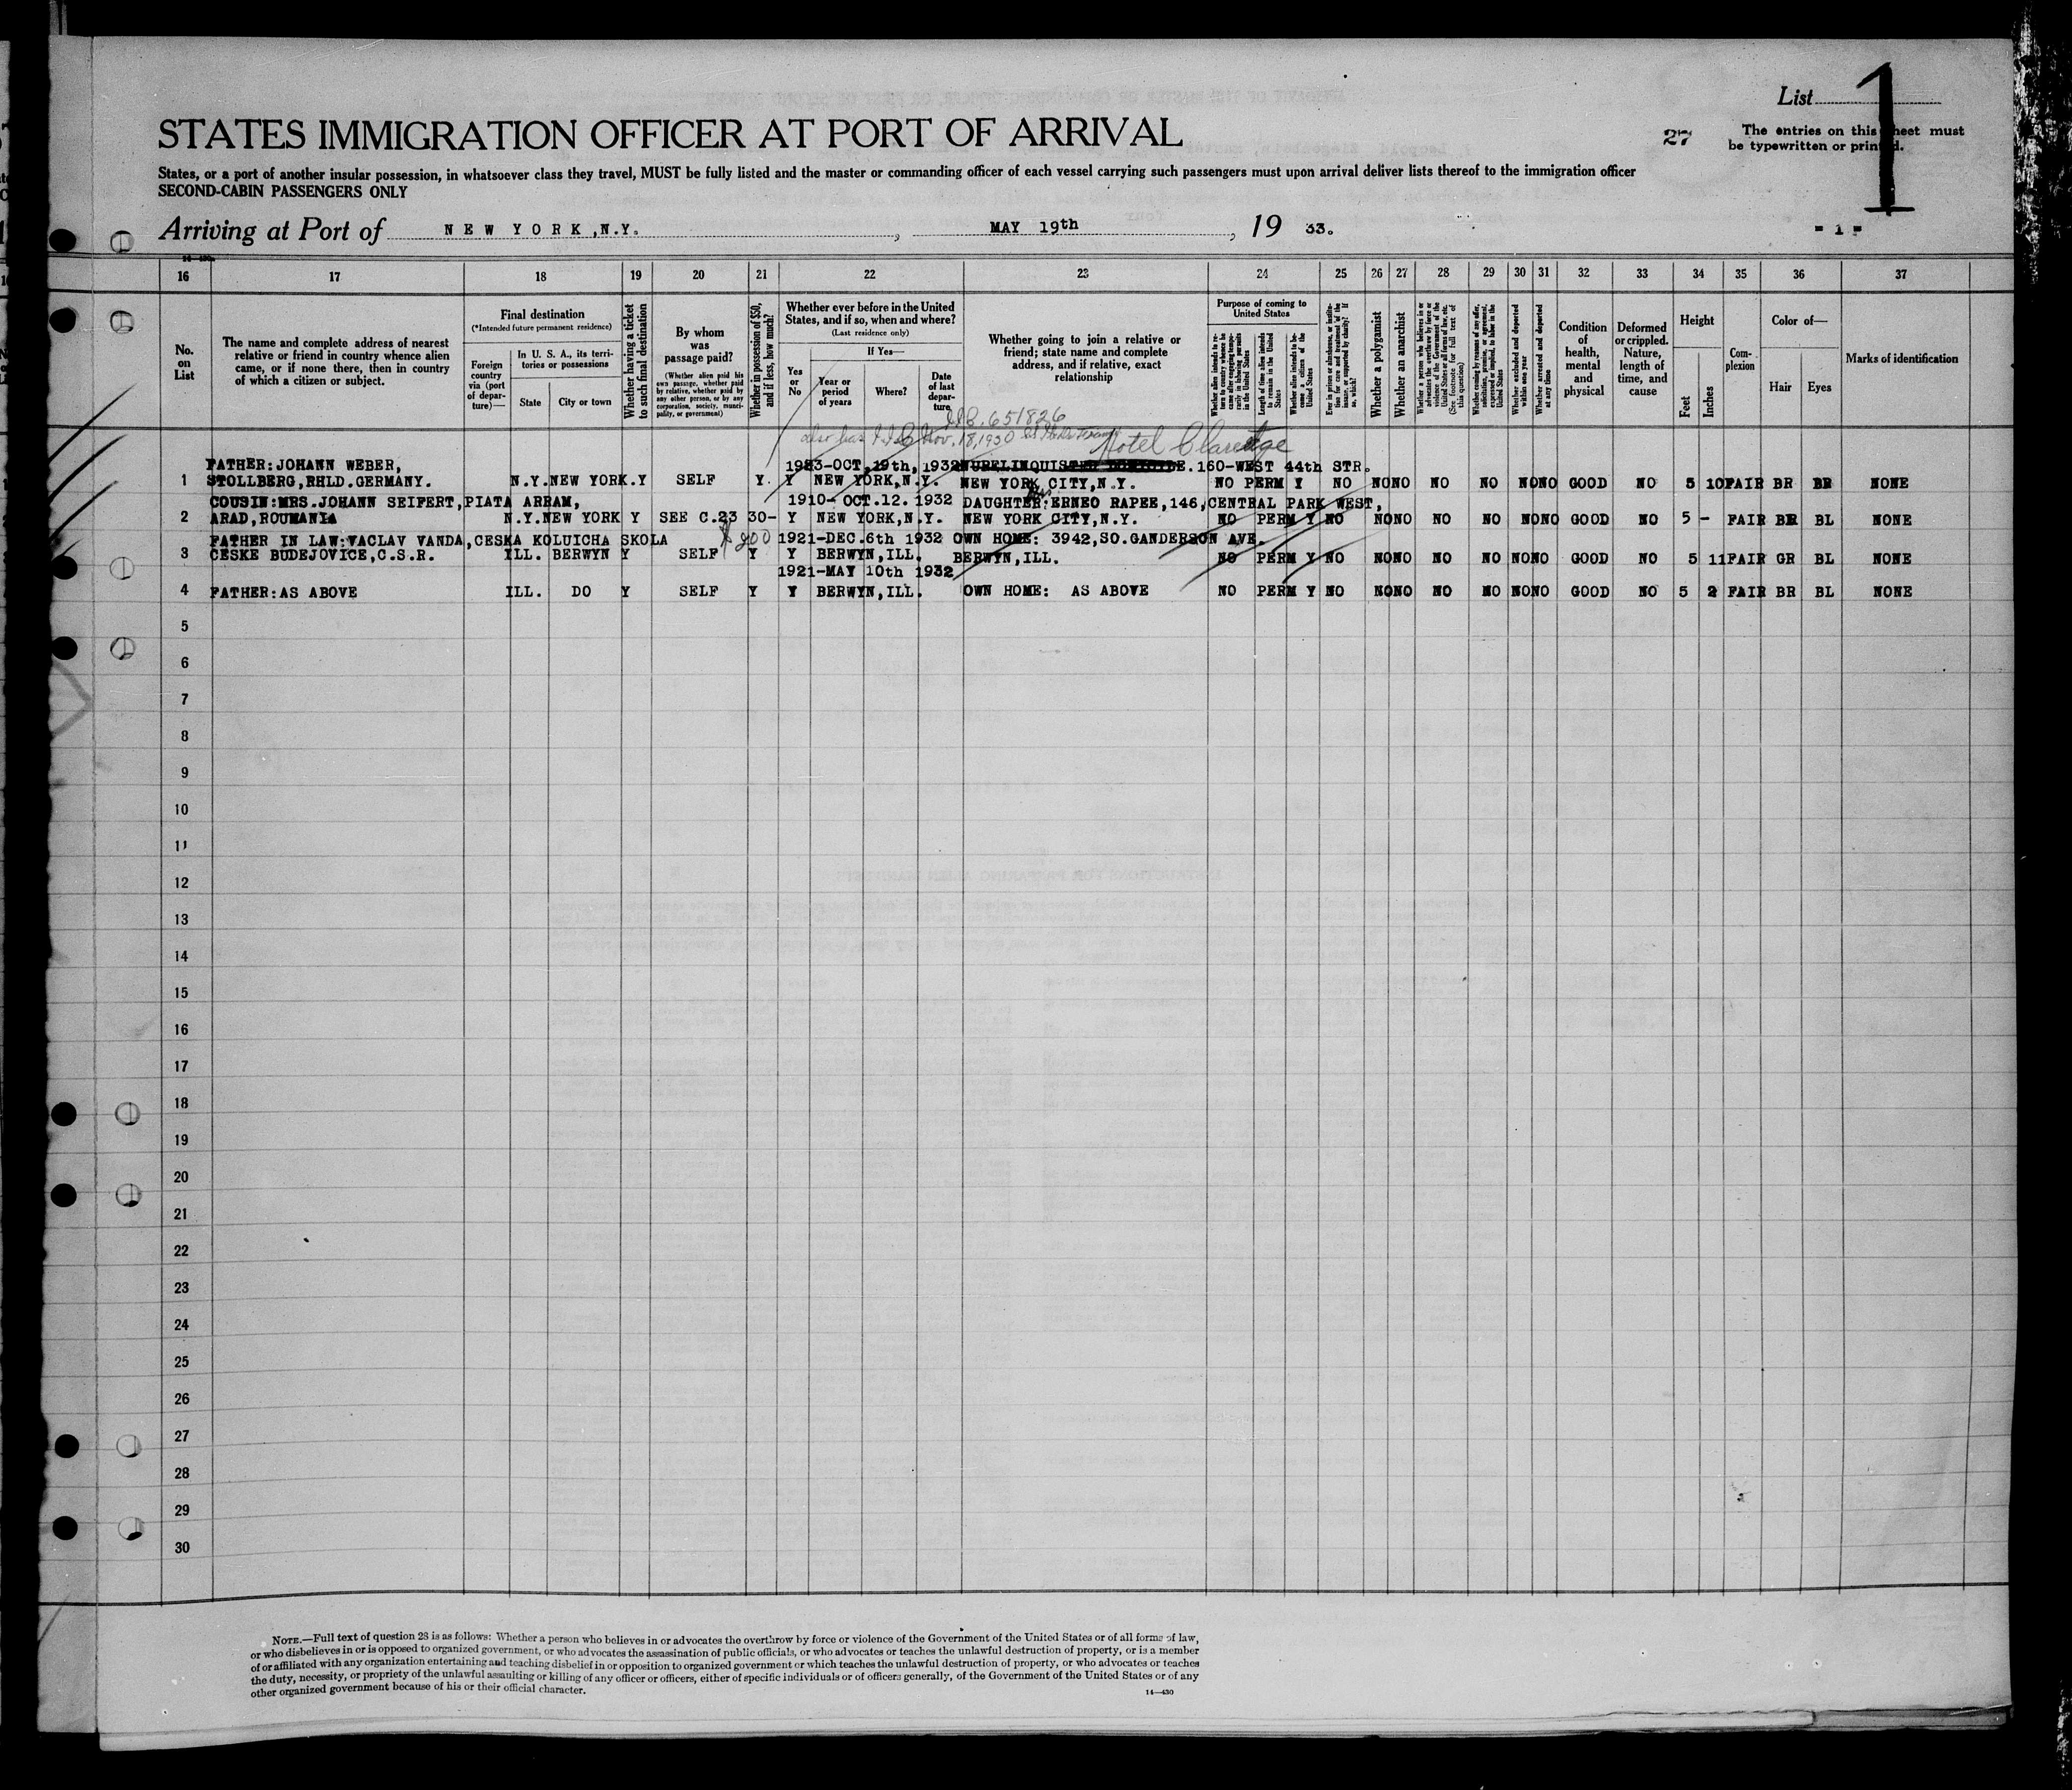 List
1
27
The entries on this sheet must
be typewritten or printed.
STATES IMMIGRATION OFFICER AT PORT OF ARRIVAL
States, or a port of another insular possession, in whatsoever class they travel, MUST be fully listed and the master or commanding officer of each vessel carrying such passengers must upon arrival deliver lists thereof to the immigration officer
SECOND-CABIN PASSENGERS ONLY
Arriving at Port of NEW YORK,N.Y. , MAY 19th , 19 33.
- 1 -
16 17 18 19 20 21 22 23 24 25 26 27 28 29 30 31 32 33 34 35 36 37
No. on List
The name and complete address of nearest relative or friend in country whence alien came, or if none there, then in country of which a citizen or subject.
Final destination
(*Intended future permanent residence)
Foreign country via (port of departure)—
In U. S. A., its territories or possessions
State
City or town
Whether having a ticket to such final destination
By whom was passage paid?
(Whether alien paid his own passage, whether paid by relative, whether paid by any other person, or by any corporation, society, municipality, or government)
Whether in possession of $50, and if less, how much?
Whether ever before in the United States, and if so, when and where?
(Last residence only)
If Yes—
Yes or No
Year or period of years
Where?
Date of last departure
Whether going to join a relative or friend; state name and complete address, and if relative, exact relationship
Purpose of coming to United States
Whether alien intends to return to country whence he came after engaging temporarily in laboring pursuits in the United States
Length of time alien intends to remain in the United States
Whether alien intends to become a citizen of the United States
Ever in prison or almshouse, or institution for care and treatment of the insane, or supported by charity? If so, which?
Whether a polygamist
Whether an anarchist
(See footnote for full text of this question)
Whether coming by reason of any offer, solicitation, promise, or agreement, expressed or implied, to labor in the United States
Whether excluded and deported within one year
Whether arrested and deported at any time
Condition of health, mental and physical
Deformed or crippled. Nature, length of time, and cause
Height
Feet
Inches
Complexion
Color of—
Hair
Eyes
Marks of identification
651826
also has Nov. 18, 1930
Hotel Claridge
FATHER:JOHANN WEBER, OCT,19th, 1932 160-WEST 44th STR.
1 STOLLBERG,RHLD.GERMANY. N.Y. NEW YORK. Y SELF Y. Y NEW YORK,N.Y. NEW YORK CITY,N.Y. NO PERM Y NO NO NO NO NO NO NO GOOD NO 5 10 FAIR BR BR NONE
COUSIN:MRS.JOHANN SEIFERT,PIATA ARRAM, 1910- OCT.12. 1932 DAUGHTER:ERNEO RAPEE,146,CENTRAL PARK WEST,
2 ARAD,ROUMANIA N.Y. NEW YORK Y SEE C.23 30- Y NEW YORK,N.Y. NEW YORK CITY,N.Y. NO PERM Y NO NO NO NO NO NO NO GOOD NO 5 - FAIR BR BL NONE
FATHER IN LAW:VACLAV VANDA,CESKA KOLUICHA SKOLA $200 1921-DEC.6th 1932 OWN HOME: 3942,SO.GANDERSON AVE.
3 CESKE BUDEJOVICE,C.S.R. ILL. BERWYN Y SELF Y Y BERWYN,ILL. BERWYN,ILL. NO PERM Y NO NO NO NO NO NO NO GOOD NO 5 11 FAIR GR BL NONE
1921-MAY 10th 1932
4 FATHER:AS ABOVE ILL. DO Y SELF Y Y BERWYN,ILL. OWN HOME: AS ABOVE NO PERM Y NO NO NO NO NO NO NO GOOD NO 5 2 FAIR BR BL NONE
5
6
7
8
9
10
11
12
13
14
15
16
17
18
19
20
21
22
23
24
25
26
27
28
29
30
NOTE.—Full text of question 28 is as follows: Whether a person who believes in or advocates the overthrow by force or violence of the Government of the United States or of all forms of law,
or who disbelieves in or is opposed to organized government, or who advocates the assassination of public officials, or who advocates or teaches the unlawful destruction of property, or is a member
of or affiliated with any organization entertaining and teaching disbelief in or opposition to organized government or which teaches the unlawful destruction of property, or who advocates or teaches
the duty, necessity, or propriety of the unlawful assaulting or killing of any officer or officers, either of specific individuals or of officers generally, of the Government of the United States or of any
other organized government because of his or their official character.
14—430